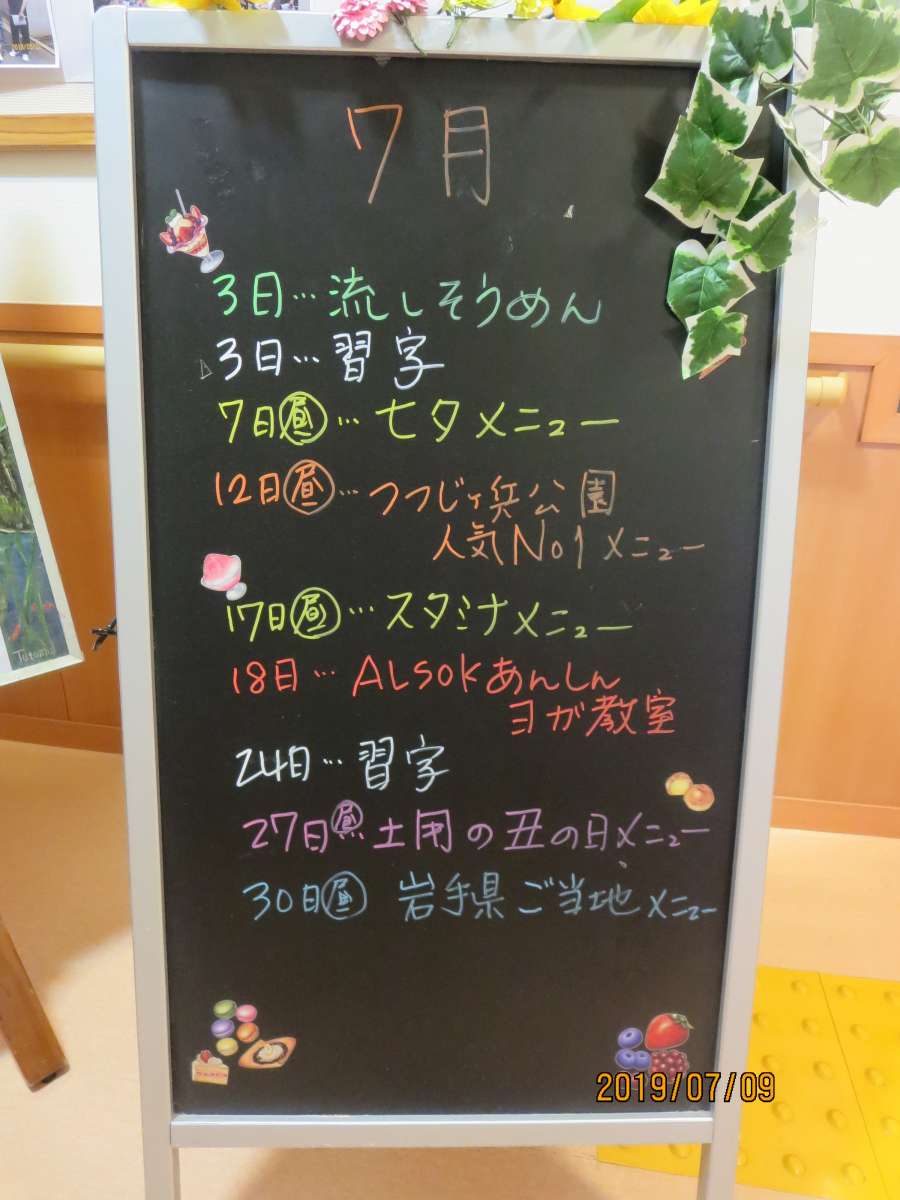 7月
3日…流しそうめん
3日…習字
7日㊐昼…七夕メニュー
12日昼…つつじヶ兵公園
人気No1メニュー
17日昼…スタミナメニュー
18日…ALSOKあんしん
ヨガ教室
24日…習字
27日昼土用の丑の日メニュー
30日昼 岩手県ご当地メニュー
2019/07/09